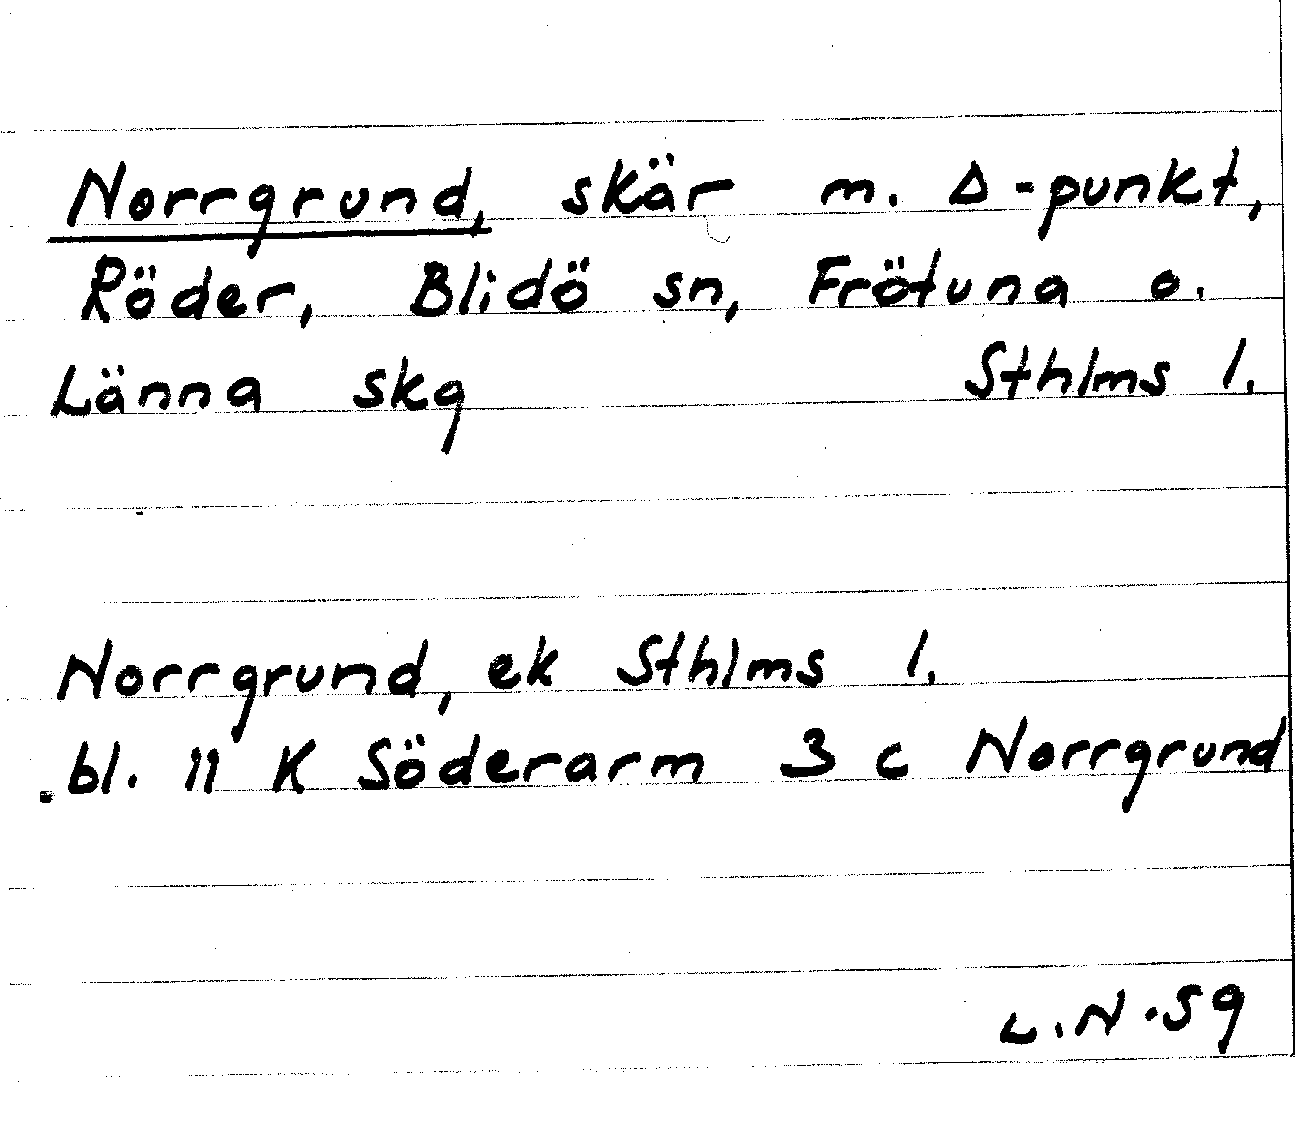 Norrgrund, skär m. Δ-punkt,
Röder, Blidö sn, Frötuna o.
Länna skg Sthlms l.
Norrgrund, ek Sthlms l.
bl. 11 K Söderarm 3 c Norrgrund
L.N.59